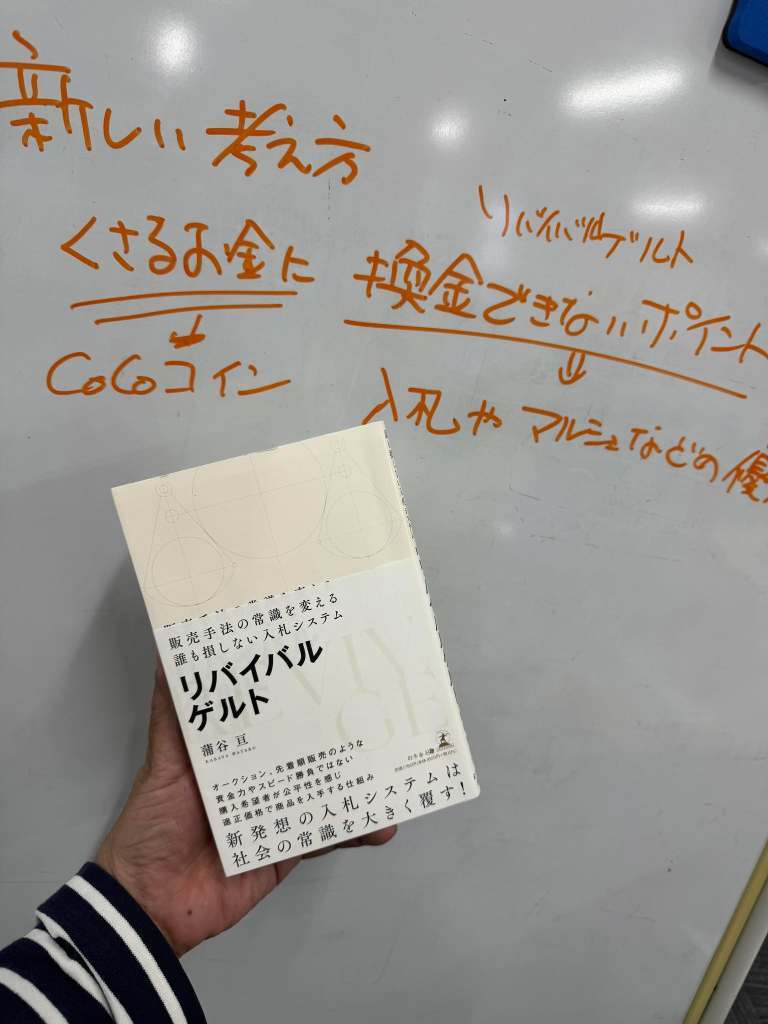 新しい考え方
リバイバルゲルト
くさるお金に 換金できないポイント
CoCoコイン
入札やマルシェなどの優
販売手法の常識を変える
誰も損しない入札システム
リバイバル
ゲルト
蒲谷 亘
オークション、先着順販売のような
資金力やスピード勝負ではない
購入希望者が公平性を感じ
適正価格で商品を入手する仕組み
新発想の入札システムは
社会の常識を大きく覆す!